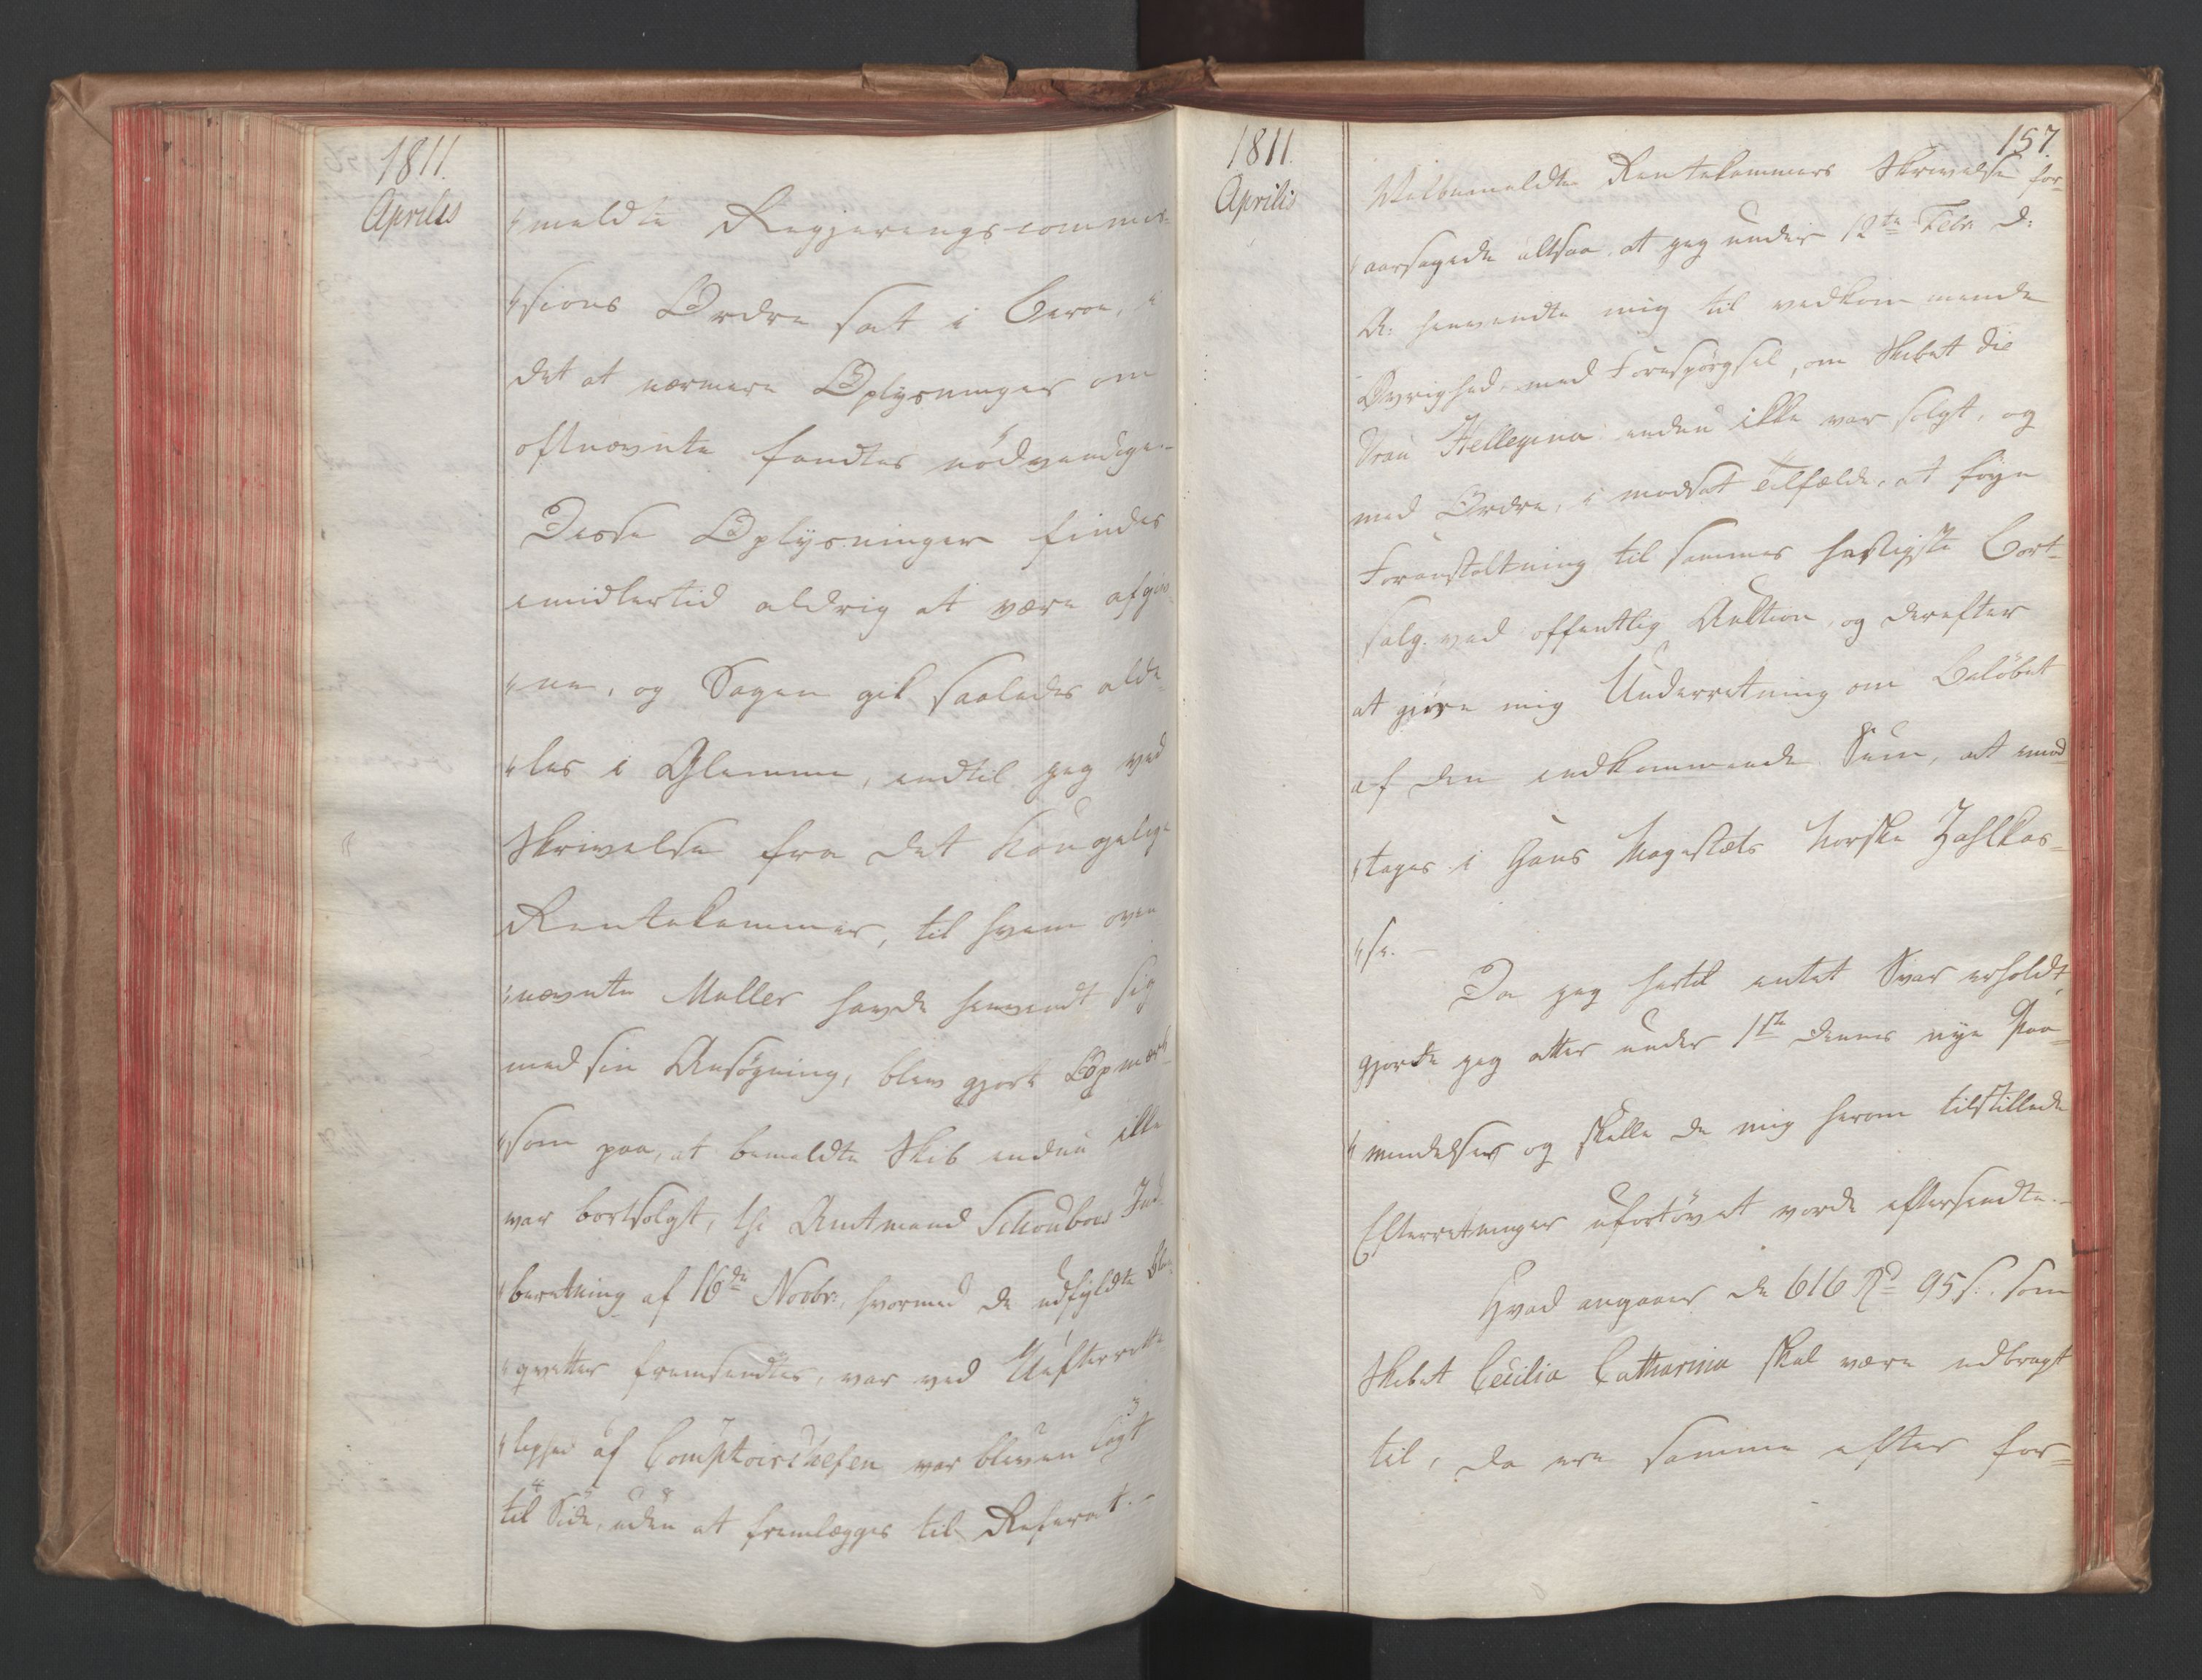 1811.
Aprilis
"meldte Regjeringscommis-
"sions Ordre sat i Beroe, i
det at nærmere Oplysninger om
oftnævnte fandtes nödvendige.-
Disse Oplysninger findes
imidlertid aldrig at være afgiv-
"ne, og Sagen gik saaledes alde-
"les i Glemme, indtil jeg ved
Skrivelse fra det Kongelige
Rentekammer, til hvem oven
"nævnte Muller havde henvendt sig
med sin Ansögning, blev gjort Opmærk-
"som paa, at bemeldte Skib endnu ikke
var bortsolgt, thi Amtmand Schouboes Ind-
"beretning af 16de Novbr:, hvormed de udfyldte Blan-
"qvetter fremsendtes, var ved Uefterrette-
"lighed af Comptoirchefen var bleven lagt
til Side, uden at fremlægges til Referat.-
1811.
Aprilis
157.
Velbemeldte Rentekammers Skrivelse for-
"aarsagede altsaa, at jeg under 12te Febr: D:
A: henvendte mig til vedkommende
Øvrighed, med Forespörgsel, om Skibet die
Frau Hellegina endnu ikke var solgt, og
med Ordre, i modsat Tilfælde, at föye
Foranstaltning til sammes hastigste Bort-
salg ved offentlig Auktion, og derefter
at give mig Underretning om Belöbet
af den indkommende Sum, at imod
"tages i Hans Majestæts Norske Zahlkas-
"se.-
Da jeg hertil intet Svar erholdt,
gjorde jeg atter under 1ste dennes nye Paa-
"mindelser og skulle de mig herom tilstillede
Efterretninger ufortövet vorde eftersendte.-
Hvad angaaer de 616 Rd 95 s. som
Skibet Cecilia Catharina skal være udbragt
til, da ere samme efter for-